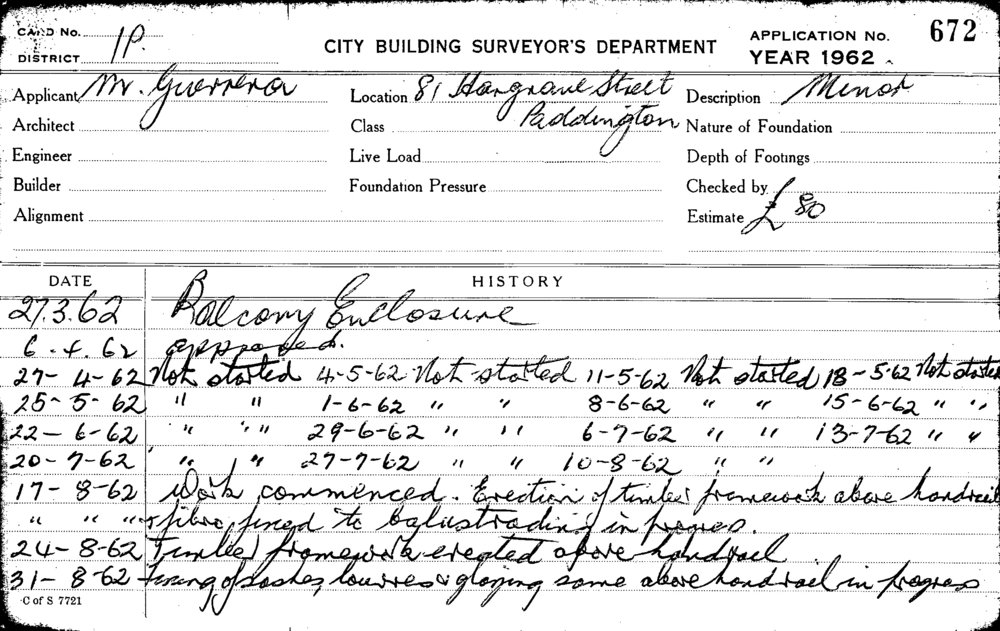 CARD No. 1P. CITY BUILDING SURVEYOR'S DEPARTMENT APPLICATION No. 672
DISTRICT YEAR 1962
Applicant Mr. Guerrera Location 81 Hargrave Street Description Minor
Architect Class Paddington Nature of Foundation
Engineer Live Load Depth of Footings
Builder Foundation Pressure Checked by
Alignment Estimate £80
DATE HISTORY
27.3.62 Balcony Enclosure
6.4.62 approved.
27-4-62 Not started 4-5-62 Not started 11-5-62 Not started 18-5-62 Not started
25-5-62 " " 1-6-62 " " 8-6-62 " " 15-6-62 " "
22-6-62 " " 29-6-62 " " 6-7-62 " " 13-7-62 " "
20-7-62 " " 27-7-62 " " 10-8-62 " "
17-8-62 Work commenced. Erection of timber framework above handrail
" " " & fibro fixed to balustrading in progress.
24-8-62 Timber framework erected above handrail
31-8-62 Fixing of sashes, louvres & glazing same above handrail in progress
C of S 7721